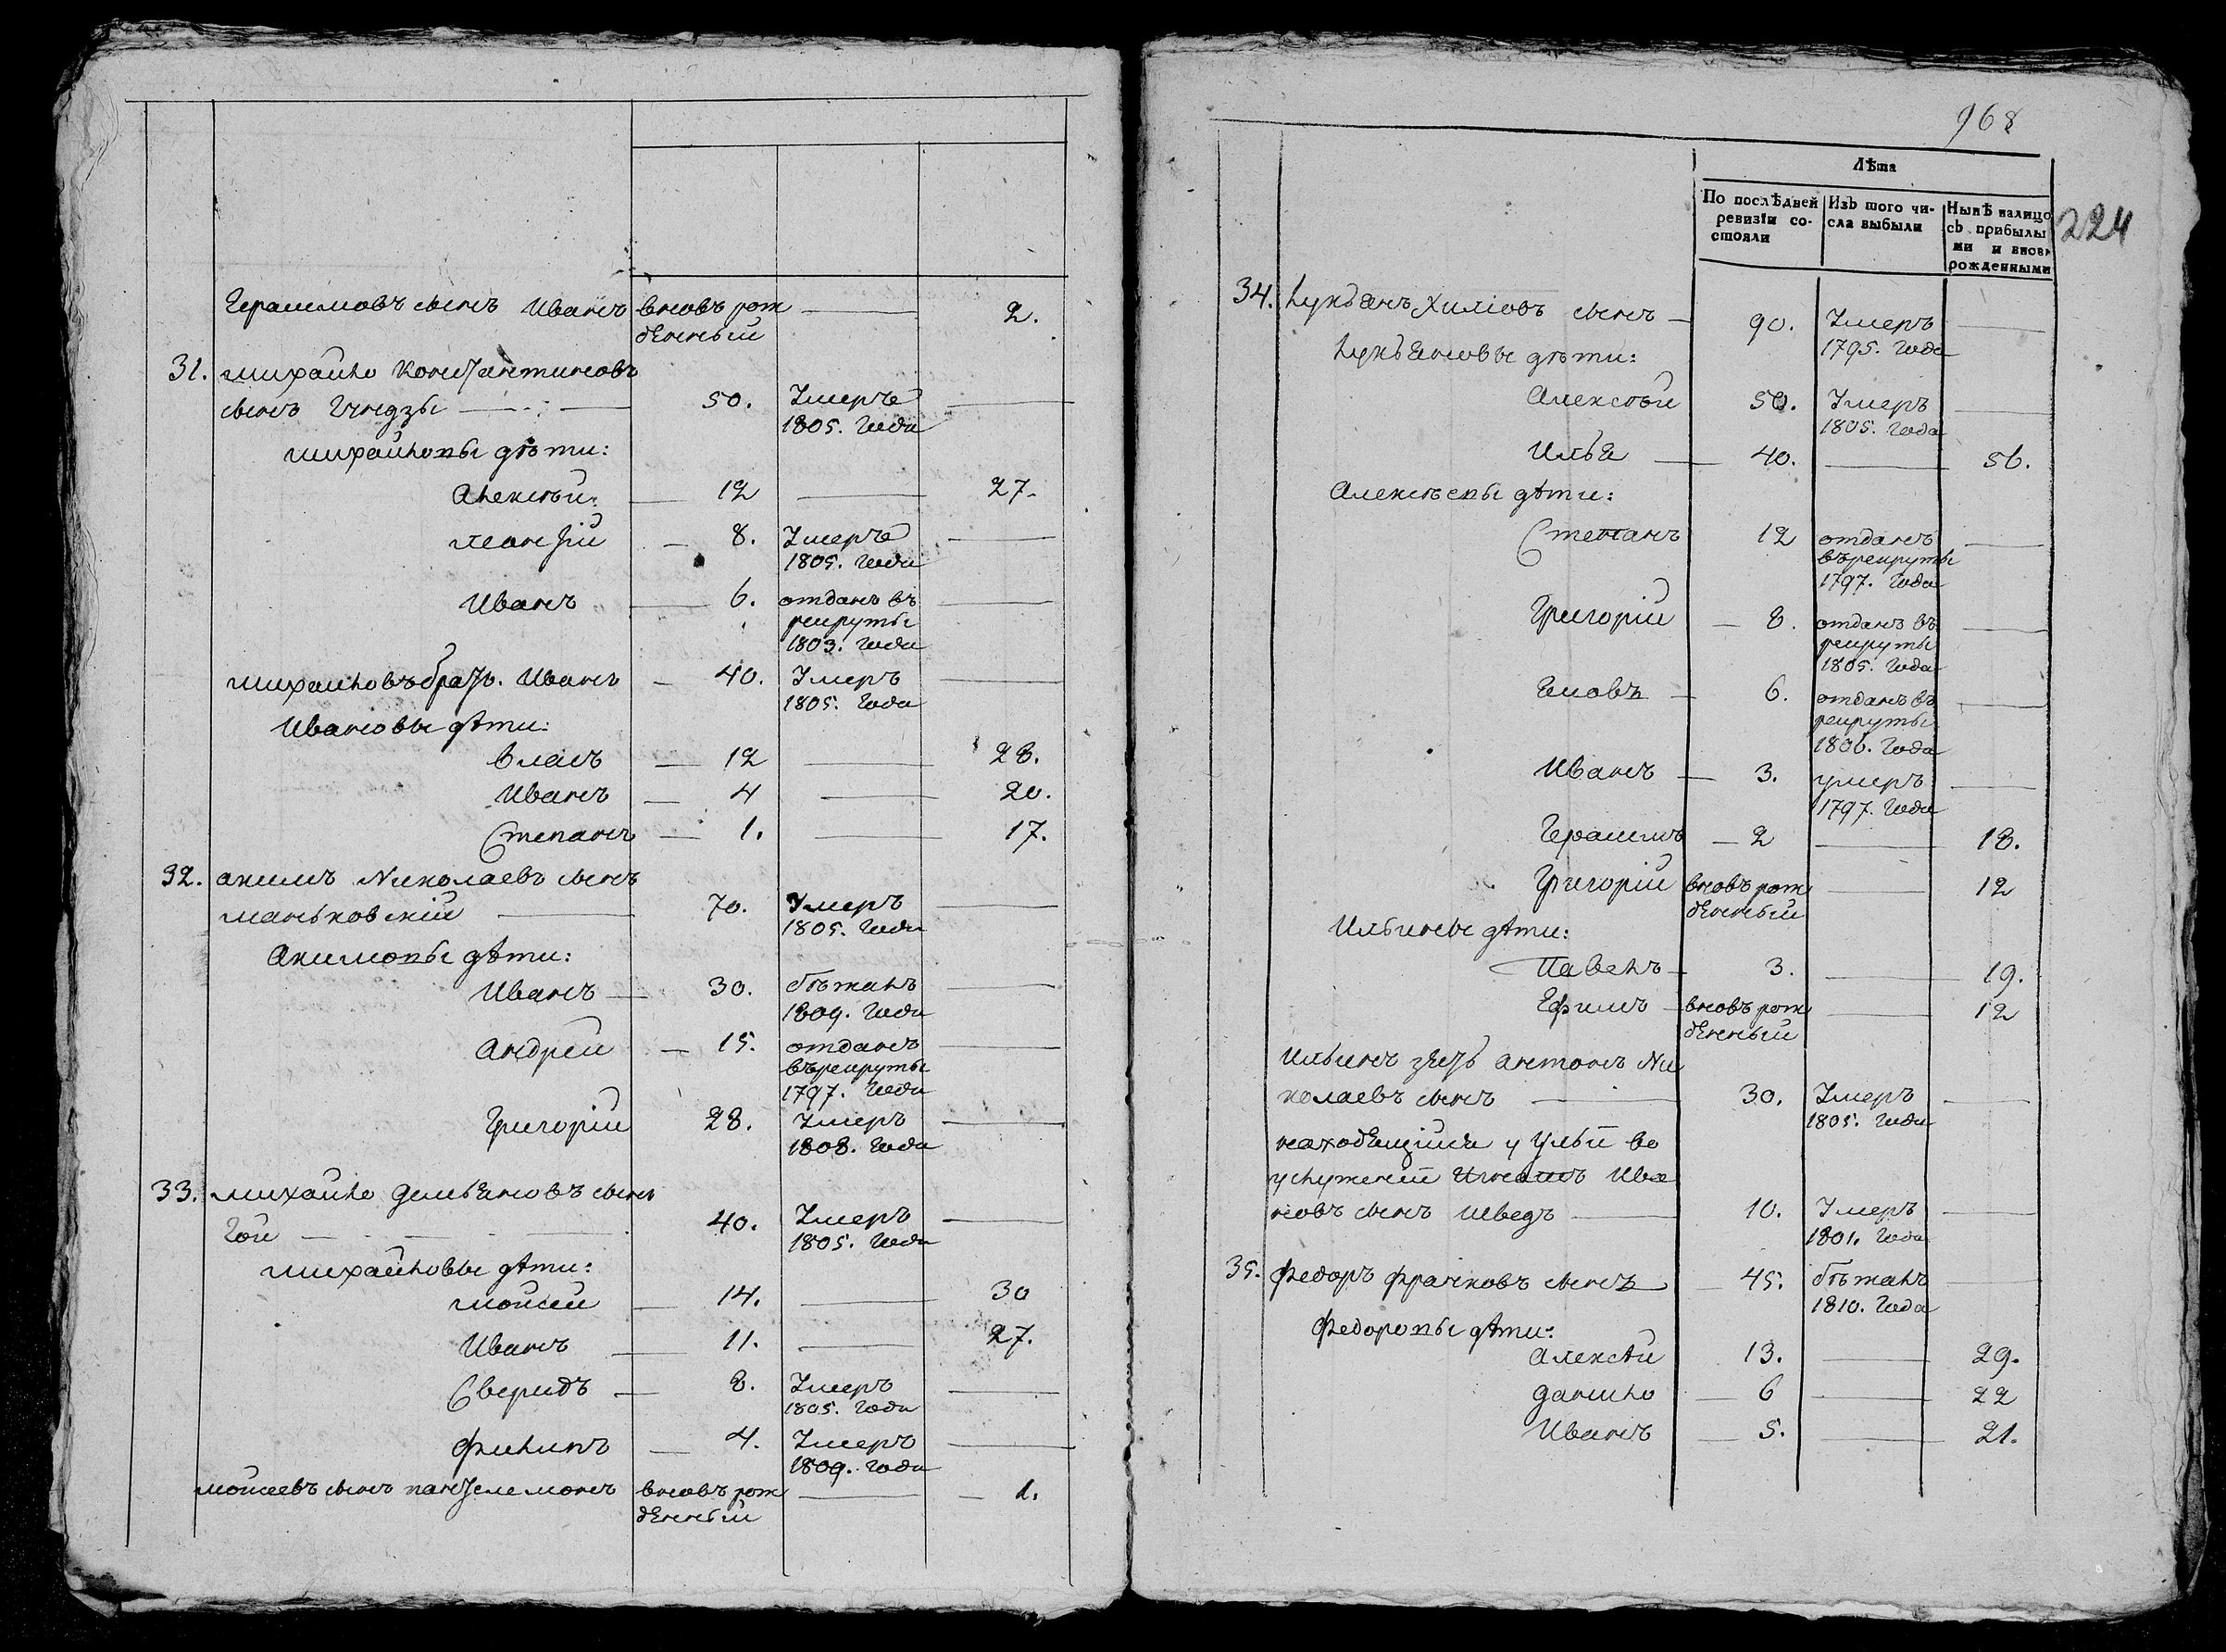 Герасимовъ сынъ Иванъ вновь рож 2.
денный
31. михайло Констянтиновъ
сынъ 50. Умеръ
1805. года
михайловы дѣти:
Алексѣй: 12 27.
8. Умеръ
1805. года
Иванъ 6. отданъ въ
рекруты
1803. года
михайловъ братъ. Иванъ 40. Умеръ
1805. года
Ивановы дѣти:
Власъ 12 28.
Иванъ 4 20.
Степанъ 1. 17.
32. акимъ Николаевъ сынъ
маньковскій 70. Умеръ
1805. года
Акимовы дѣти:
Иванъ 30. бѣжалъ
1809. года
андрей 15. отданъ
въ рекруты
1797. года
Григорій 28. Умеръ
1808. года
33. михайло демьяновъ сынъ
Гой 40. Умеръ
1805. года
михайловы дѣти:
мойсей 14. 30
Иванъ 11. 27.
Сверидъ 8. Умеръ
1805. года
филипъ 4. Умеръ
1809. года
мойсеевъ сынъ пантелемонъ вновь рож 1.
денный
968
224
Лѣта
По послѣдней ревизіи со-стояли
Изъ того чи-сла выбыли
Нынѣ налицо съ прибылы ми и вновь рожденными
34. Лукьянъ сынъ 90. Умеръ
1795. года
Лукьяновы дѣти:
Алексѣй 50. Умеръ
1805. года
Илья 40. 56.
Алексѣевы дѣти:
Степанъ 12 отданъ
въ рекруты
1797. года
Григорій 8. отданъ въ
рекруты
1805. года
6. отданъ въ
рекруты
1806. года
Иванъ 3. умеръ
1797. года
Герасимъ 2 18.
Григорій вновь рож 12
денный
Ильины дѣти:
Павелъ 3. 19.
Ефимъ вновь рож 12
денный
Ильинъ зять антонъ Ни
колаевъ сынъ 30. Умеръ
1805. года
находящійся у Ильи во
услуженіи Ива
новъ сынъ шведъ 10. Умеръ
1801. года
35. федоръ фрачковъ сынъ 45. бѣжалъ
1810. года
федоровы дѣти:
Алексѣй 13. 29.
данило 6 22
Иванъ 5. 21.